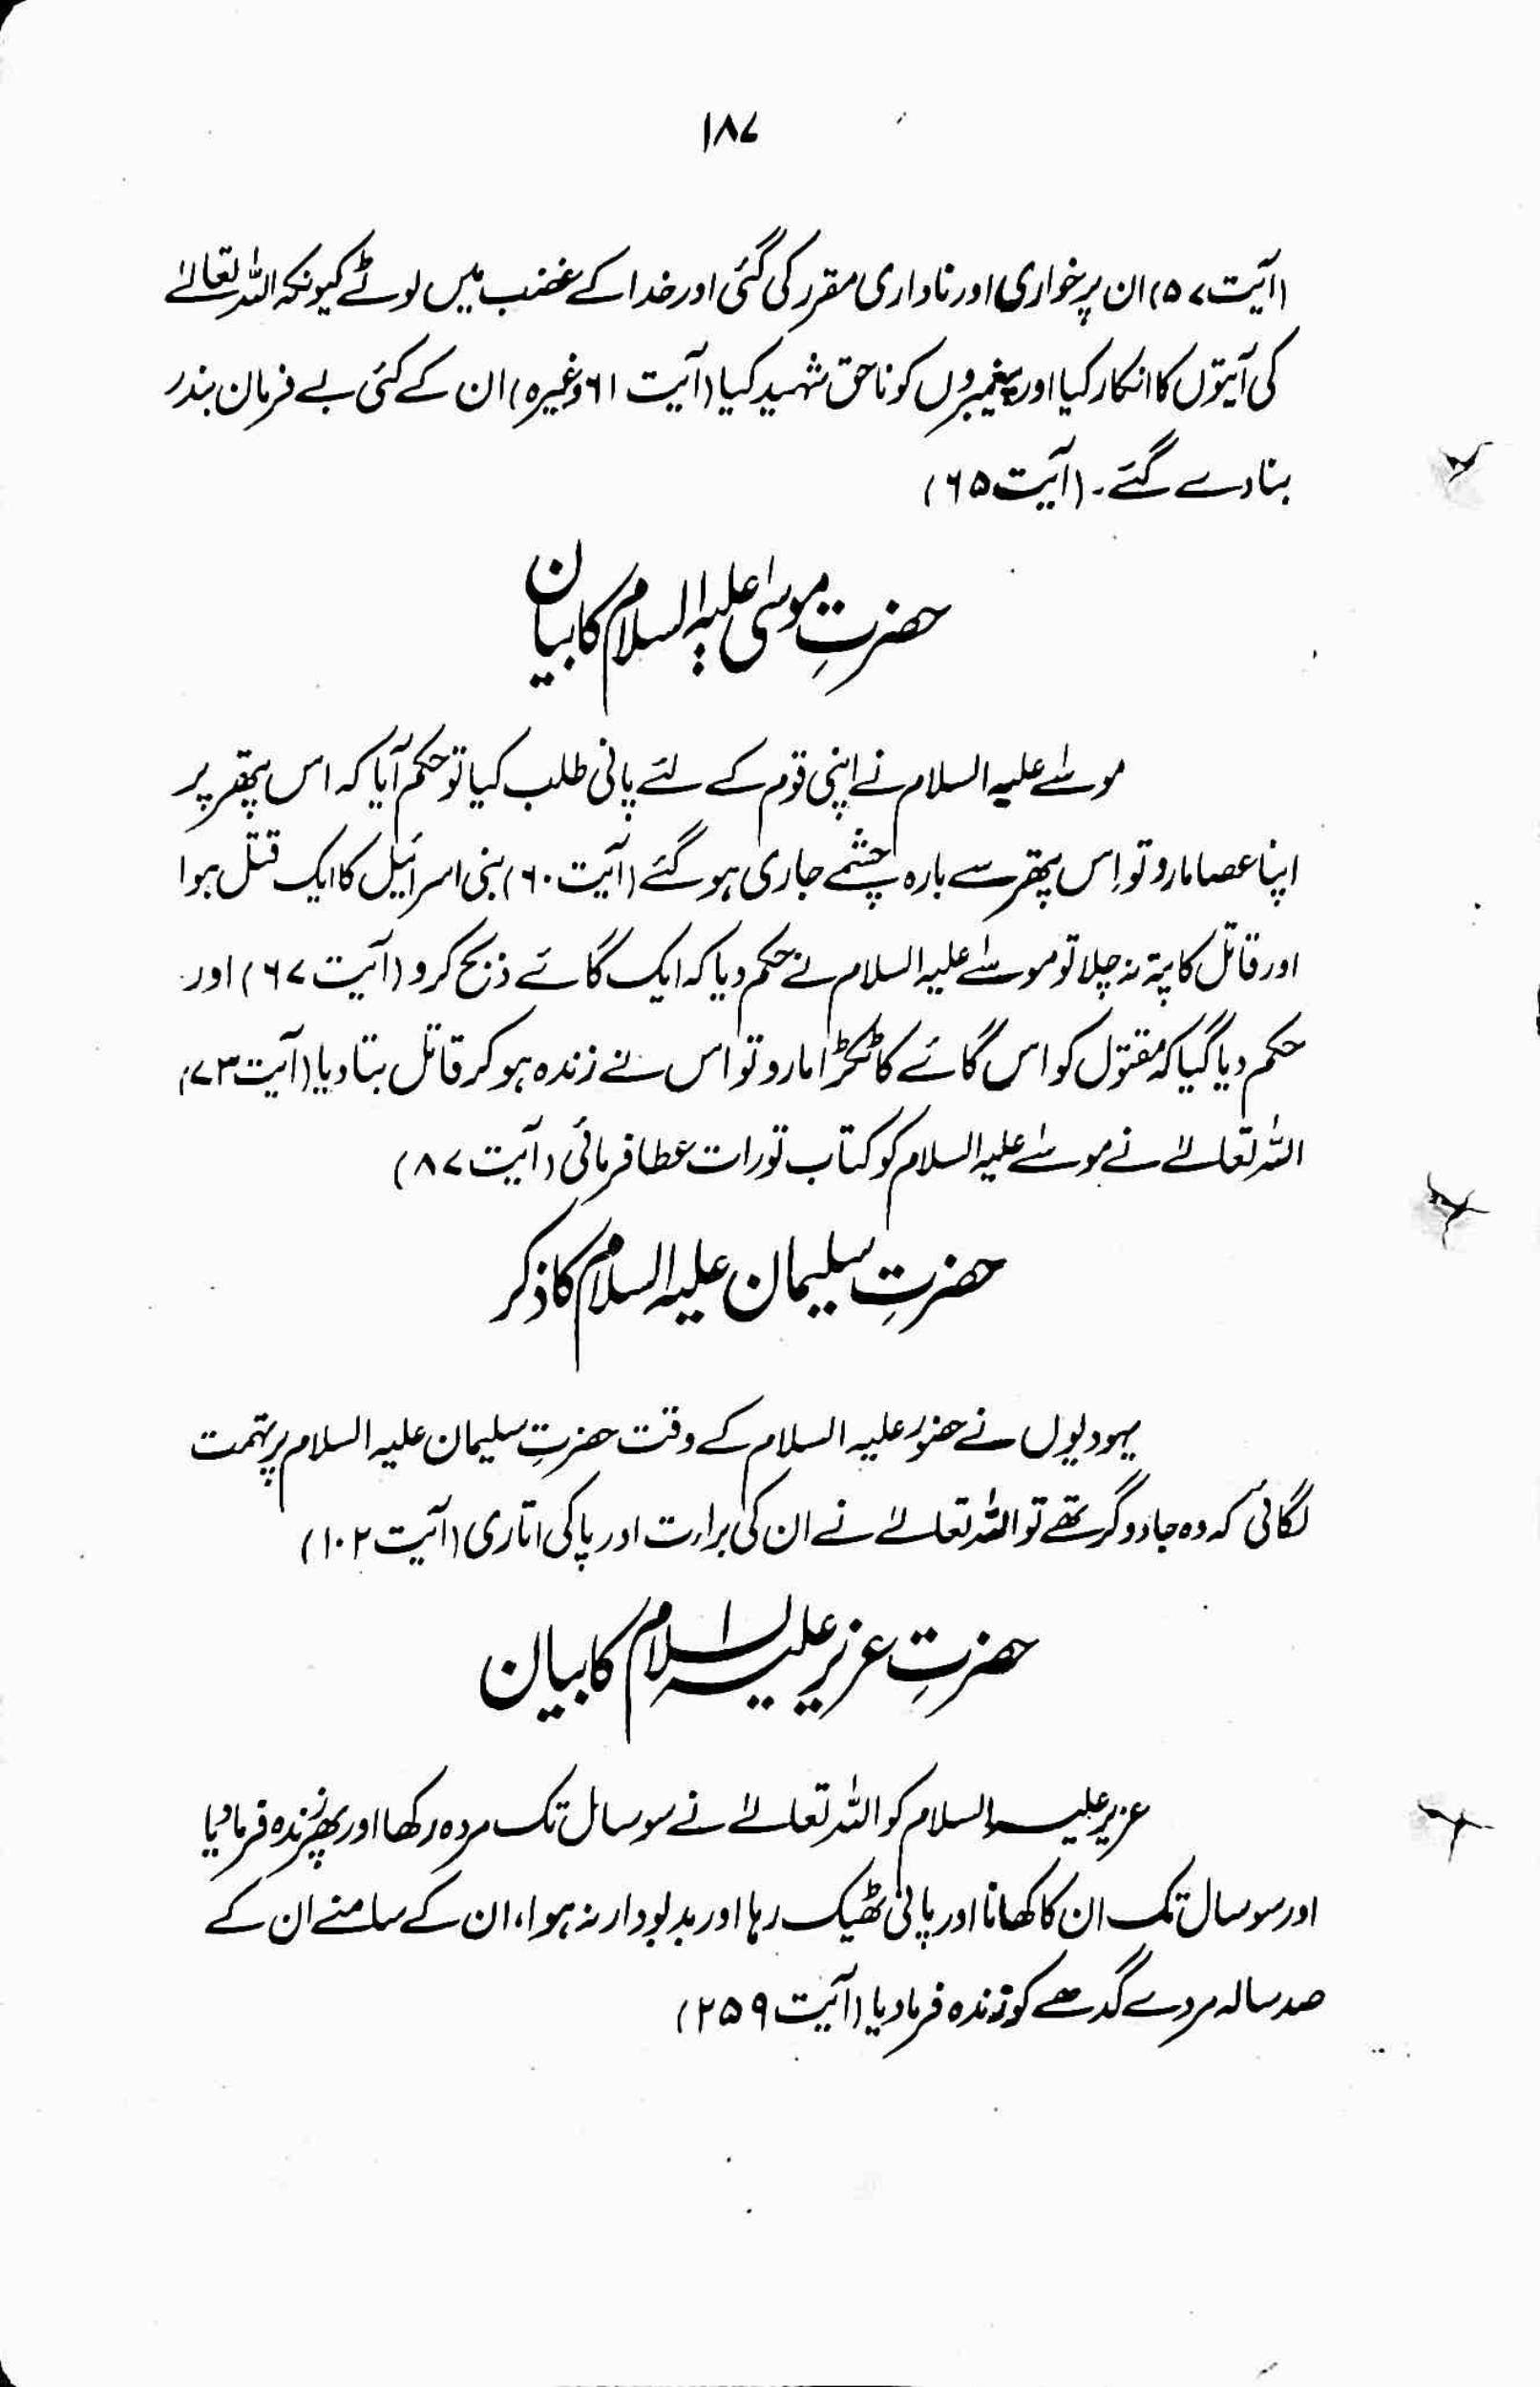 ۱۸۷
(آیت ۵۷) ان پر خواری اور ناداری مقرر کی گئی اور خدا کے غضب میں لوٹے کیونکہ اللہ تعالےٰ
کی آیتوں کا انکار کیا اور پیغمبروں کو ناحق شہید کیا (آیت ۶۱ وغیرہ) ان کے کئی بے فرمان بندر
بنادے گئے۔ (آیت ۶۵)
حضرتِ موسیٰ علیہ السلام کا بیان
موسےٰ علیہ السلام نے اپنی قوم کے لئے پانی طلب کیا تو حکم آیا کہ اس پتھر پر
اپنا عصا مارو تو اِس پتھر سے بارہ چشمے جاری ہو گئے (آیت ۶۰) بنی اسرائیل کا ایک قتل ہوا
اور قاتل کا پتہ نہ چلا تو موسےٰ علیہ السلام نے حکم دیا کہ ایک گائے ذبح کرو (آیت ۶۷) اور
حکم دیا گیا کہ مقتول کو اس گائے کا ٹکڑا مارو تو اس نے زندہ ہو کر قاتل بتا دیا (آیت ۷۳)
اللہ تعالےٰ نے موسےٰ علیہ السلام کو کتاب تورات عطا فرمائی (آیت ۸۷)
حضرتِ سلیمان علیہ السلام کا ذکر
یہودیوں نے حضور علیہ السلام کے وقت حضرتِ سلیمان علیہ السلام پر تہمت
لگائی کہ وہ جادوگر تھے تو اللہ تعالےٰ نے ان کی براءت اور پاکی اتاری (آیت ۱۰۲)
حضرتِ عزیر علیہ السلام کا بیان
عزیر علیہ السلام کو اللہ تعالےٰ نے سو سال تک مردہ رکھا اور پھر زندہ فرمادیا
اور سو سال تک ان کا کھانا اور پانی ٹھیک رہا اور بدبودار نہ ہوا، ان کے سامنے ان کے
صد سالہ مردے گدھے کو زندہ فرما دیا (آیت ۲۵۹)